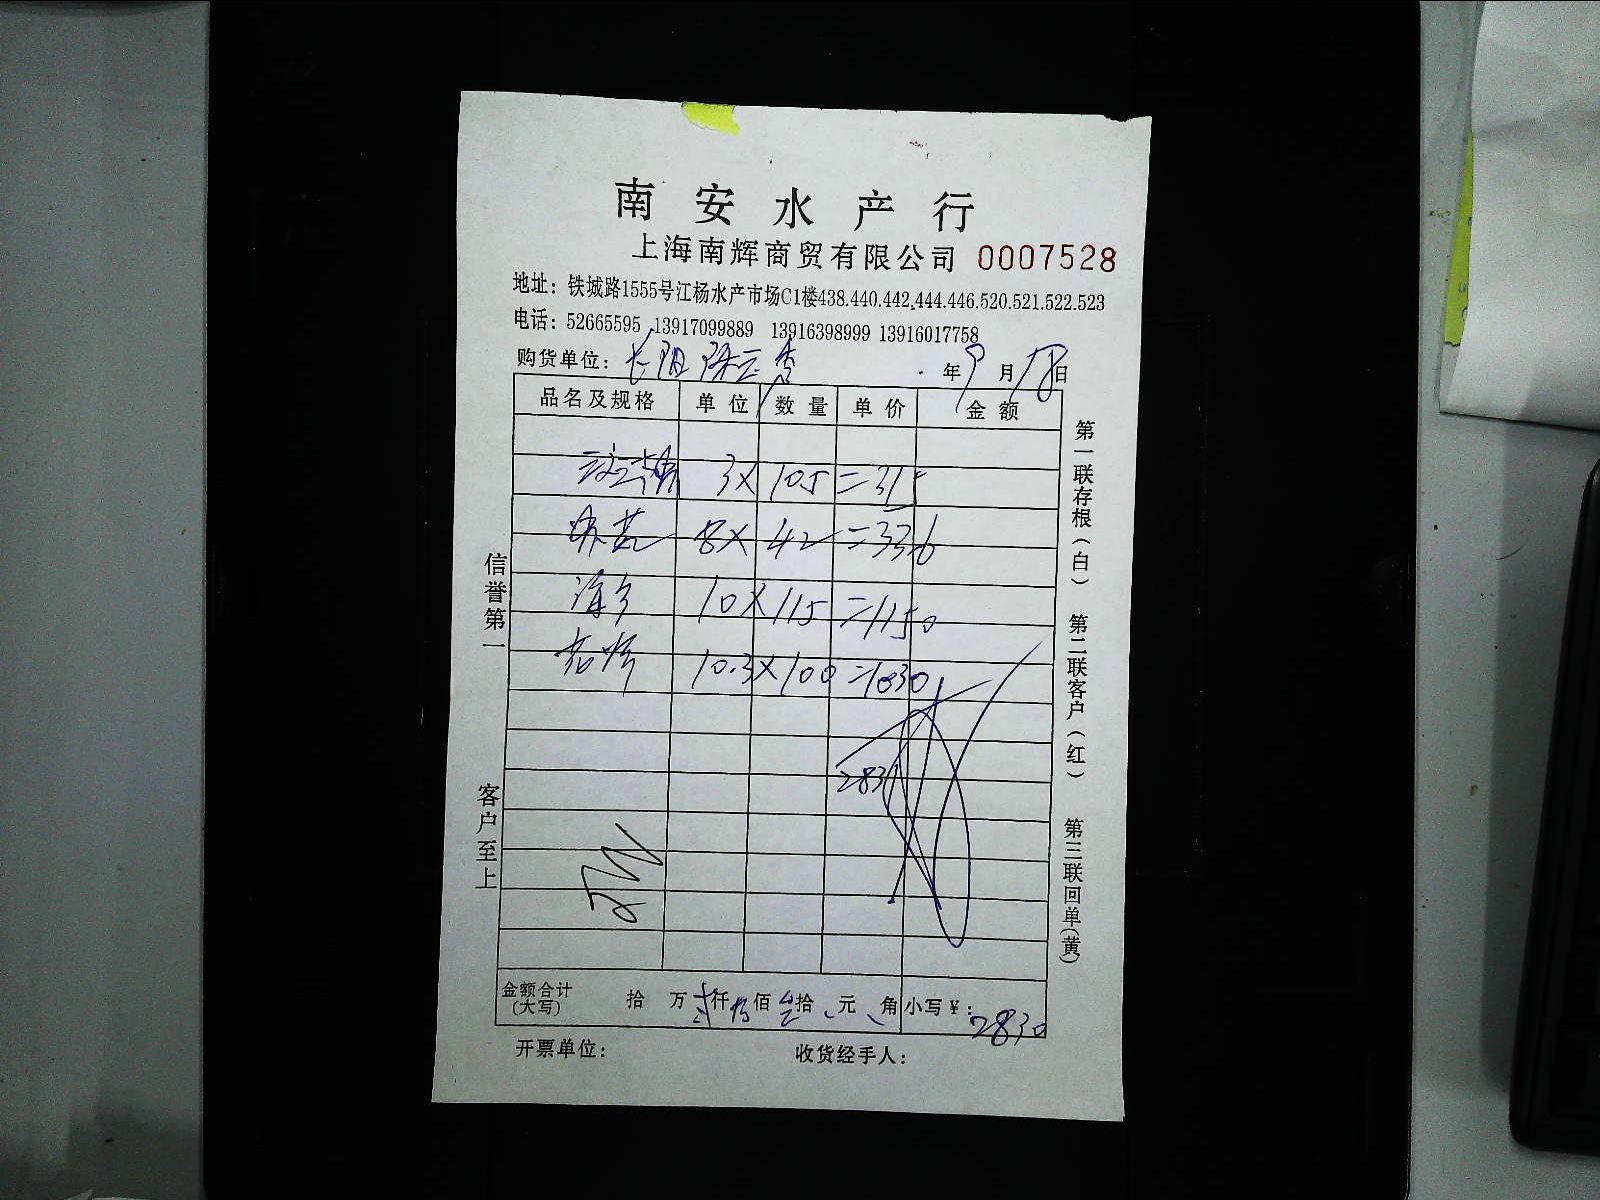 南安水产行
上海南辉商贸有限公司 0007528
地址：铁城路1555号江杨水产市场C1楼438.440.442.444.446.520.521.522.523
电话：52665595 13917099889 13916398999 13916017758
购货单位：长阳 年9月18日
品名及规格 单位 数量 单价 金额
3× 105 =315
8× 42 =336
10×115 =1150
10.3×100 =1030
2831
金额合计（大写） 拾 万 贰仟 捌佰 叁拾 、元 、角 小写￥：2830
开票单位： 收货经手人：
信誉第一
客户至上
第一联存根（白）
第二联客户（红）
第三联回单（黄）